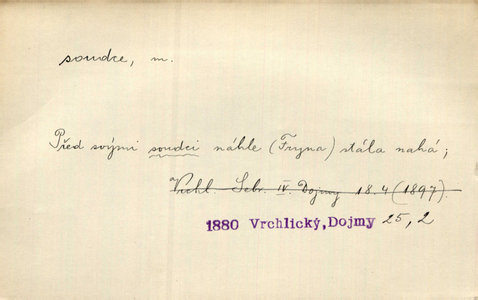 soudce, m.
Před svými soudci náhle (Fryna) stála nahá;
Vrchl. Sebr. IV. Dojmy 18.4 (1897).
1880 Vrchlický, Dojmy 25, 2